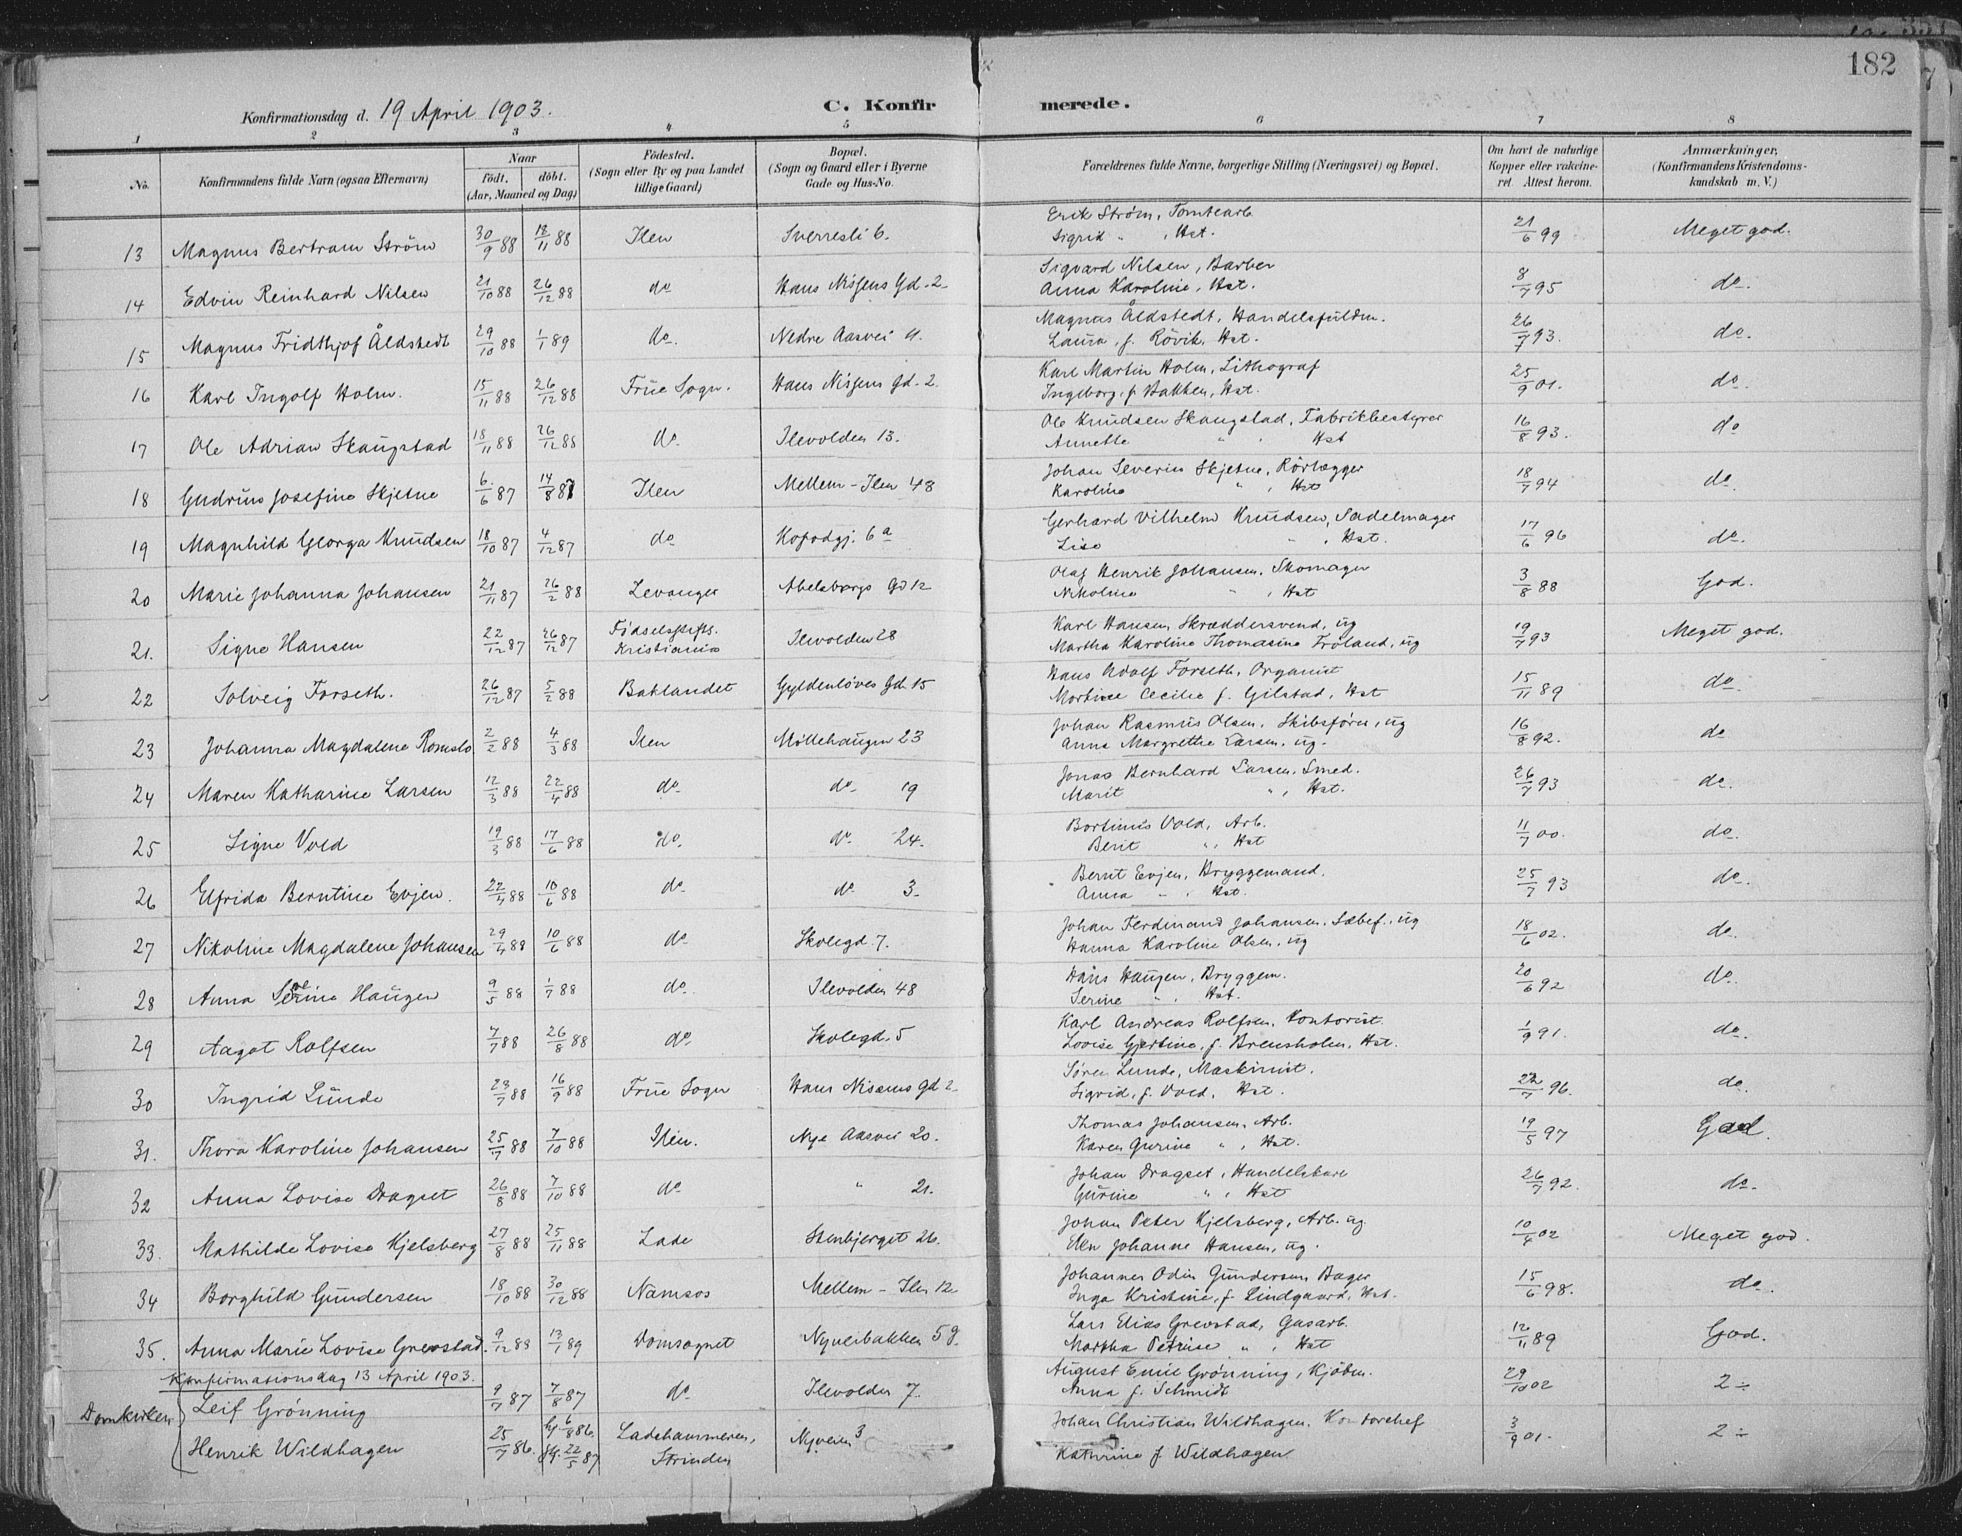 182
Konfirmationsdag d. 19 April 1903. C. Konfirmerede.
1 2 3 4 5 6 7 8
No. Konfirmandens fulde Navn (ogsaa Efternavn) Naar födt. döbt. (Aar, Maaned og Dag) Födested. (Sogn eller By og paa Landet tillige Gaard) Bopæl. (Sogn og Gaard eller i Byerne Gade og Hus-No. Forældrenes fulde Navne, borgerlige Stilling (Næringsvei) og Bopæl. Om havt de naturlige Kopper eller vakcineret. Attest herom. Anmærkninger, (Konfirmandens Kristendomskundskab m. V.)
13 Magnus Bertram Ström 30/9 88 18/11 88 Ilen Sverresli 6. Erik Strøm, Tomtearb 21/6 99 Meget god.
Sigrid " , Hst.
14 Edvin Reinhard Nilsen 21/10 88 26/12 88 do Hans Nissens Gd. 2 Sigvard Nilsen, Barber 8/7 95 do.
Anna Karoline, Hst.
15 Magnus Fridthjof Åldstedt 29/10 88 1/1 89 do. Nedre Aasvei Magnus Åldstedt, Handelsfuldm. 26/7 93. do.
Laura, f. Rövik, Hst.
16 Karl Ingolf Holm. 15/11 88 26/12 88 Frue Sogn. Hans Nissens Gd. 2. Karl Martin Holm, Lithograf 25/9 01. do.
Ingeborg, f. Bakken, Hst.
17 Ole Adrian Skaugstad 18/11 88 26/12 88 do. Ilevolden 13. Ole Knudsen Skaugstad, Fabrikbestyrer 16/8 93. do
Annette " , Hst
18 Gudrun Josefine Skjetne 6/6 87 14/8 87 Ilen Mellem-Ilen 48 Johan Severin Skjetne, Rörlægger 18/7 94 do.
Karoline " , Hst
19 Magnhild Georga Knudsen 18/10 87 4/12 87 do Kopodgj. 6 a Gerhard Vilhelm Knudsen, Sadelmager 17/6 96 do.
Lise " , Hst.
20 Marie Johanna Johansen 21/11 87 26/2 88 Levanger Abelsborgs Gd 12 Olaf Henrik Johansen, Skomager 3/8 88 God.
Nikoline " , Hst
21. Signe Hansen 22/12 87 26/12 87 Fødselsstifts. Kristiania Ilevolden 28 Karl Hansen, Skræddersvend, ug 19/7 93 Meget god.
Martha Karoline Thomasine Frøland, ug
22 Solveig Forseth. 26/12 87 5/2 88 Baklandet Gyldenløves Gd. 15 Hans Adolf Forseth, Organist 15/11 89 do.
Cecilie f. Gilstad, Hst
23 Johanna Magdalene Romslo 2/2 88 4/3 88 Ilen Möllehaugen 23 Johan Rasmus Olsen, Skibsfører, ug 16/8 92. do
Anna Margrethe Larsen, ug.
24 Maren Katharine Larsen 12/3 88 22/4 88 do do 19 Jonas Bernhard Larsen, Smed. 26/7 93 do.
Marit " , Hst.
25 Signe Vold 19/3 88 17/6 88 do. do 24. Bortinus Vold, Arb. 11/7 00. do.
Berit " , Hst
26 Elfrida Berntine Evjen. 22/4 88 10/6 88 do do 3. Bernt Evjen, Bryggemand. 25/7 93 do.
Anna " , Hst.
27 Nikoline Magdalene Johansen 29/4 88 10/6 88 do Skolegd. 7. Johan Ferdinand Johansen, Sæbef., ug 18/6 02. do.
Hanna Karoline Olsen, ug
28 Anna Serine Haugen 9/5 88 1/7 88 do. Ilevolden 48 Hans Haugen, Bryggem. 20/6 92 do.
Serine " , Hst.
29 Aagot Rolfsen 7/7 88 26/8 88 do. Skolegd. 5 Karl Andreas Rolfsen, Kontorist. 1/9 91. do.
Lovise Gjertine, f. Brensholm, Hst.
30 Ingrid Lunde 23/7 88 16/9 88 Frue Sogn Hans Nissens Gd 2 Søren Lunde, Maskinist. 22/7 96. do.
Sigrid, f. Vold, Hst.
31. Thora Karoline Johansen 25/7 88 7/10 88 Ilen. Nye Aasvei 20. Thomas Johansen, Arb. 19/5 97 God.
Karen Gurine " , Hst.
32 Anna Lovise Dragset 26/8 88 7/10 88 do " 21. Johan Dragset, Handelskarl 26/7 92. do.
Gurine " , Hst
33. Mathilde Lovise Kjelsberg 27/8 88 25/11 88 Lade Stenbjerget 26. Johan Peter Kjelsberg, Arb. ug 10/4 02 Meget god.
Elen Johanne Hansen, ug.
34 Borghild Gundersen 18/10 88 30/12 88 Namsos Mellem-Ilen 12 Johannes Odin Gundersen, Bager 15/6 98. do.
Inga Kristine, f. Lindgaard, Hst.
35. Anna Marie Lovise Grevstad. 9/12 88 13/1 89 Domsognet Nyveibakken 5 g. Lars Elias Grevstad, Gasarb. 12/11 89 God.
Martha Petrine " , Hst
Konfirmationsdag 13 April 1903.
Domkirken Leif Grønning 9/7 87 7/8 87 do Ilevolden 7. August Emil Grönning, Kjöbm. 29/10 02 2 ÷
Anna f. Schmidt
Henrik Wildhagen 25/7 86. 6/8 86. 22/5 87 Ladehammeren, Strinden Nyveien 3 Johan Christian Wildhagen, Kontorchef 3/9 01. 2 ÷
Kathrine f. Wildhagen